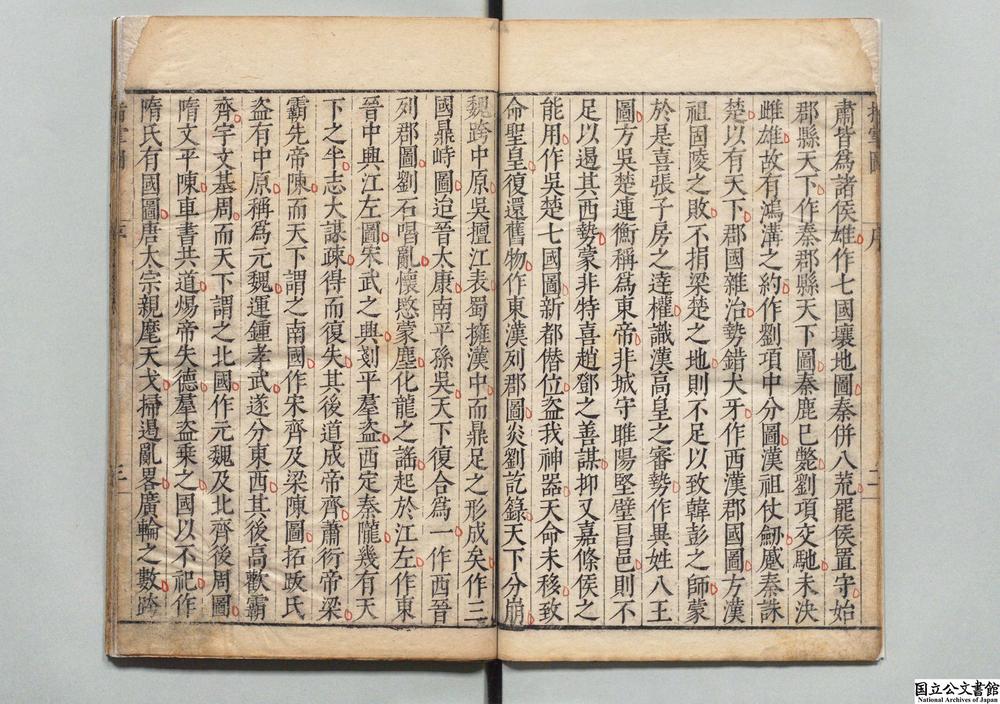 肅皆爲諸侯雄作七國壤地圖秦併八荒罷侯置守始
郡縣天下作秦郡縣天下圖秦鹿已斃劉項交馳未決
雌雄故有鴻溝之約作劉項中分圖漢祖仗劒蹙秦誅
楚以有天下郡國雜治勢錯犬牙作西漢郡國圖方漢
祖固陵之敗不捐梁楚之地則不足以致韓彭之師蒙
於是喜張子房之達權識漢高皇之審勢作異姓八王
圖方吳楚連衡稱爲東帝非城守睢陽堅壁昌邑則不
足以遏其西勢蒙非特喜趙鄧之善謀抑又嘉條侯之
能用作吳楚七國圖新都僣位盗我神器天命未移致
命聖皇復還舊物作東漢列郡圖炎劉訖錄天下分崩
魏跨中原吳擅江表蜀擁漢中而鼎足之形成矣作三
國鼎峙圖迨晉太康南平孫吳天下復合爲一作西晉
列郡圖劉石唱亂懷愍蒙塵化龍之謠起於江左作東
晉中興江左圖宋武之興剗平羣盗西定秦隴幾有天
下之半志大謀疎得而復失其後道成帝齊蕭衍帝梁
霸先帝陳而天下謂之南國作宋齊及梁陳圖拓跋氏
盗有中原稱爲元魏運鍾孝武遂分東西其後高歡霸
齊宇文基周而天下謂之北國作元魏及北齊後周圖
隋文平陳車書共道煬帝失德羣盗乘之國以不祀作
隋氏有國圖唐太宗親麾天戈掃遏亂畧廣輪之數跨
指掌圖
序
二
三
国立公文書館
National Archives of Japan